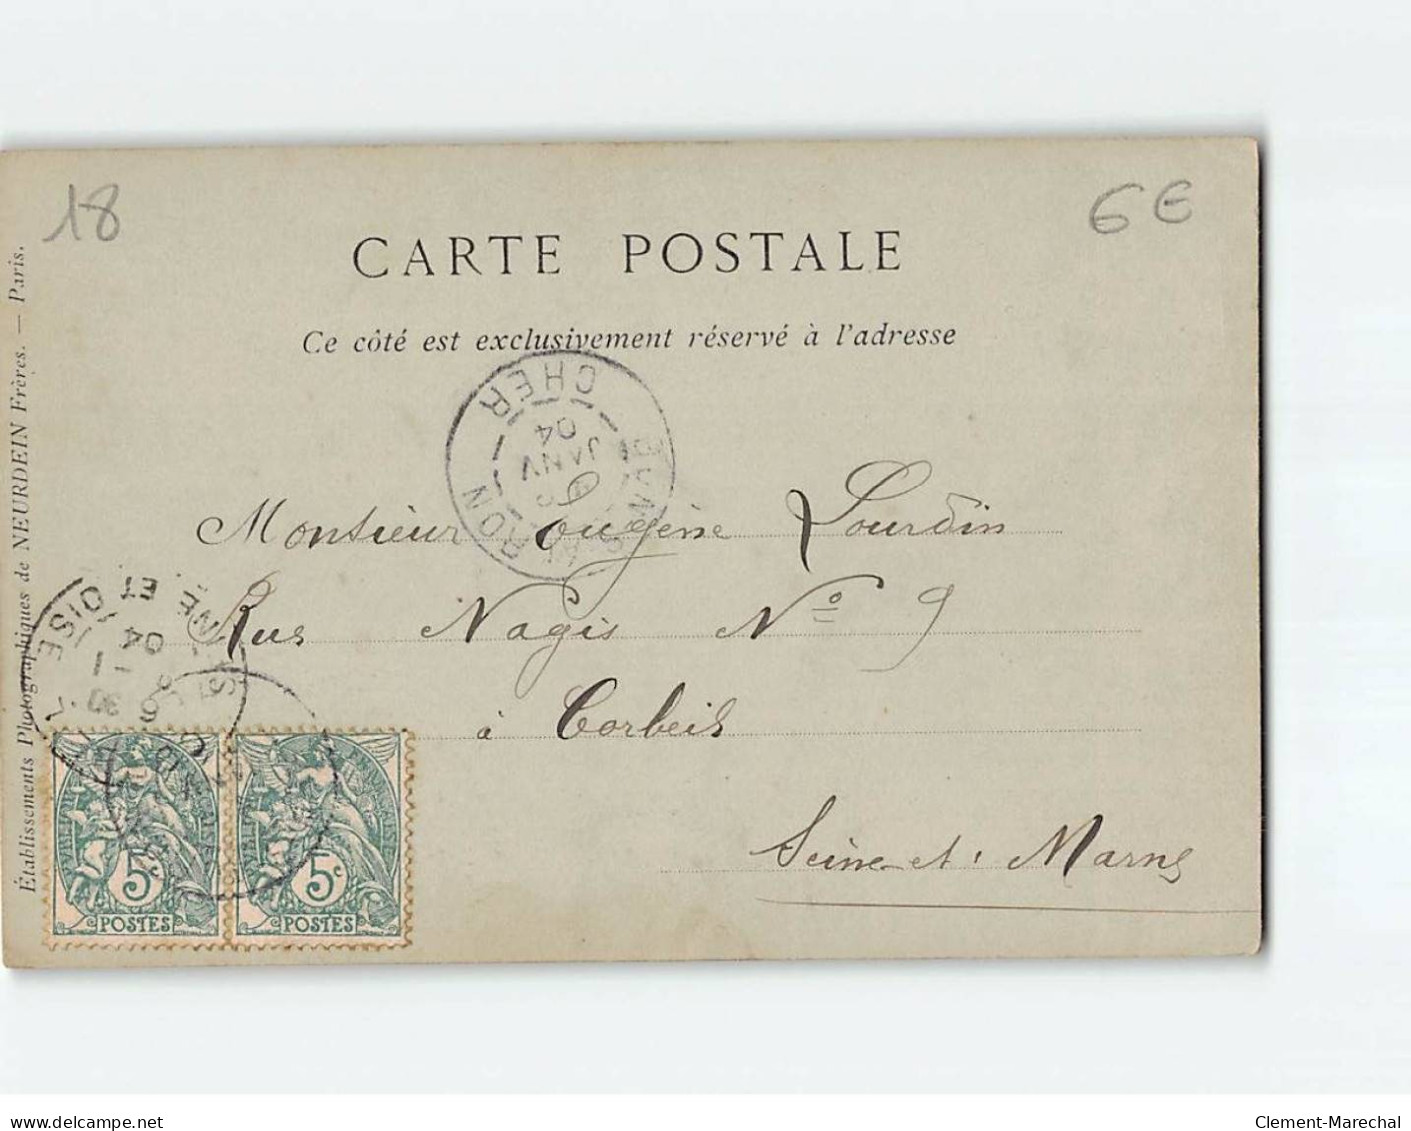 18
6 €
CARTE POSTALE
Ce côté est exclusivement réservé à l'adresse
Établissements Photographiques de NEURDEIN Frères. — Paris.
CHER
04
JANV
Monsieur Eugène Lourdin
Rue Nagis Nº 9
à Corbeil
Seine et Marne
ET OISE
04
5
POSTES
5c
POSTES
www.delcampe.net
Clement-Marechal